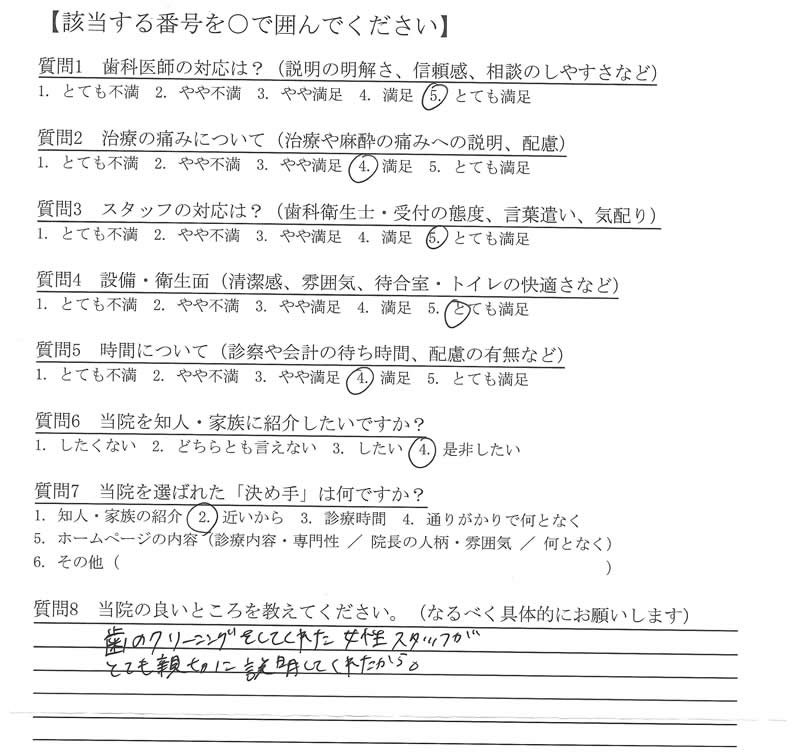 【該当する番号を○で囲んでください】
質問1 歯科医師の対応は？（説明の明解さ、信頼感、相談のしやすさなど）
1. とても不満 2. やや不満 3. やや満足 4. 満足 5. とても満足
質問2 治療の痛みについて（治療や麻酔の痛みへの説明、配慮）
1. とても不満 2. やや不満 3. やや満足 4. 満足 5. とても満足
質問3 スタッフの対応は？（歯科衛生士・受付の態度、言葉遣い、気配り）
1. とても不満 2. やや不満 3. やや満足 4. 満足 5. とても満足
質問4 設備・衛生面（清潔感、雰囲気、待合室・トイレの快適さなど）
1. とても不満 2. やや不満 3. やや満足 4. 満足 5. とても満足
質問5 時間について（診察や会計の待ち時間、配慮の有無など）
1. とても不満 2. やや不満 3. やや満足 4. 満足 5. とても満足
質問6 当院を知人・家族に紹介したいですか？
1. したくない 2. どちらとも言えない 3. したい 4. 是非したい
質問7 当院を選ばれた「決め手」は何ですか？
1. 知人・家族の紹介 2. 近いから 3. 診療時間 4. 通りがかりで何となく
5. ホームページの内容（診療内容・専門性 ／ 院長の人柄・雰囲気 ／ 何となく）
6. その他（ ）
質問8 当院の良いところを教えてください。（なるべく具体的にお願いします）
歯のクリーニングをしてくれた女性スタッフが
とても親切に説明してくれたから。